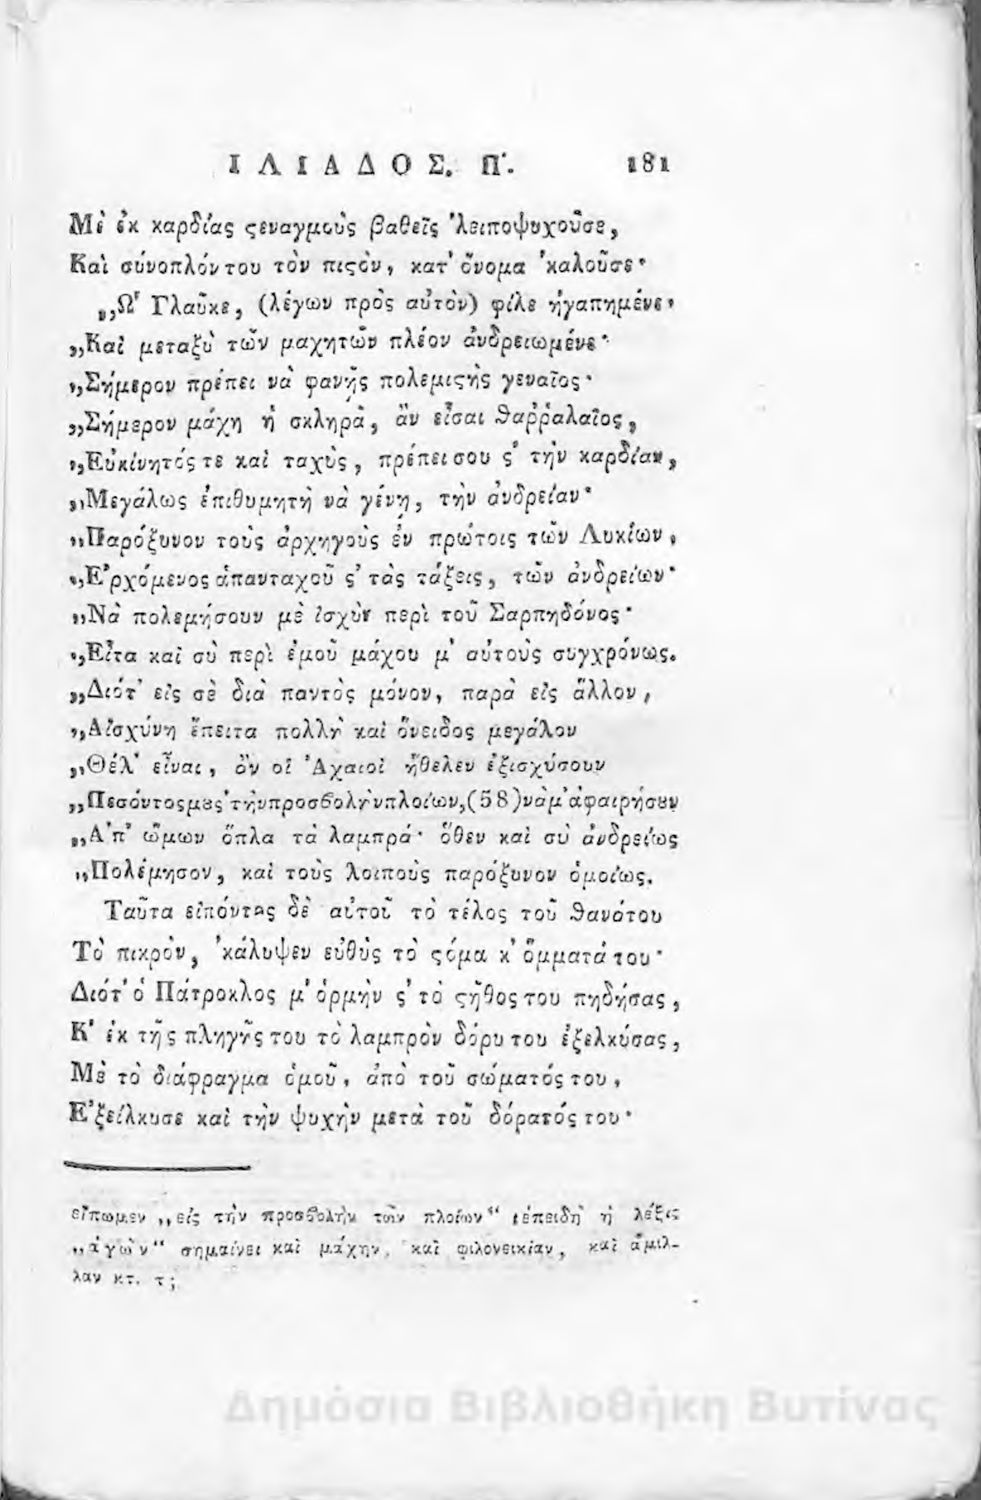 ΙΛΙΑΔΟΣ. Π'. 181
Μὲ ἐκ καρδίας ϛεναγμοὺς βαθεῖς 'λειποψυχοῦσε,
Καὶ σύνοπλόν του τὸν πιϛὸν, κατ' ὄνομα 'καλοῦσε·
„Ω῏ Γλαῦκε, (λέγων πρὸς αὐτὸν) φίλε ἠγαπημένε·
„Καὶ μεταξὺ τῶν μαχητῶν πλέον ἀνδρειωμένε·
„Σήμερον πρέπει νὰ φανῇς πολεμιϛὴς γεναῖος·
„Σήμερον μάχη ἡ σκληρὰ, ἂν εἶσαι θαῤῥαλαῖος,
„Εὐκίνητός τε καὶ ταχὺς, πρέπει σου ϛ' τὴν καρδίαν,
„Μεγάλως ἐπιθυμητὴ νὰ γένῃ, τὴν ἀνδρείαν·
„Παρόξυνον τοὺς ἀρχηγοὺς ἐν πρώτοις τῶν Λυκίων,
„Ε'ρχόμενος ἁπανταχοῦ ϛ' τὰς τάξεις, τῶν ἀνδρείων·
„Νὰ πολεμήσουν μὲ ἰσχὺν περὶ τοῦ Σαρπηδόνος·
„Εἶτα καὶ σὺ περὶ ἐμοῦ μάχου μ' αὐτοὺς συγχρόνως.
„Διότ' εἰς σὲ διὰ παντὸς μόνον, παρὰ εἰς ἄλλον,
„Αἰσχύνη ἔπειτα πολλὴ καὶ ὄνειδος μεγάλον
„Θέλ' εἶναι, ἂν οἱ 'Αχαιοὶ ἤθελεν ἐξισχύσουν
„Πεσόντος μȣς 'τὴν προσβολὴν πλοίων, (58) νὰ μ' ἀφαιρήσȣν
„Α'π' ὤμων ὅπλα τὰ λαμπρά· ὅθεν καὶ σὺ ἀνδρείως
„Πολέμησον, καὶ τοὺς λοιποὺς παρόξυνον ὁμοίως.
Ταῦτα εἰπόντος δὲ αὐτοῦ τὸ τέλος τοῦ θανάτου
Τὸ πικρὸν, 'κάλυψεν εὐθὺς τὸ ϛόμα κ' ὄμματά του·
Διότ' ὁ Πάτροκλος μ' ὁρμὴν ϛ' τὸ ϛῆθος του πηδήσας,
Κ' ἐκ τῆς πληγῆς του τὸ λαμπρὸν δόρυ του ἐξελκύσας,
Μὲ τὸ διάφραγμα ὁμοῦ, ἀπὸ τοῦ σώματός του,
Ε'ξείλκυσε καὶ τὴν ψυχὴν μετὰ τοῦ δόρατός του·
εἴπωμεν „εἰς τὴν προσβολὴν τῶν πλοίων“ ἐπειδὴ ἡ λέξις
„ἀγὼν“ σημαίνει καὶ μάχην, καὶ φιλονεικίαν, καὶ ἅμιλ-
λαν κτ. τ;
Δημόσια Βιβλιοθήκη Βυτίνας